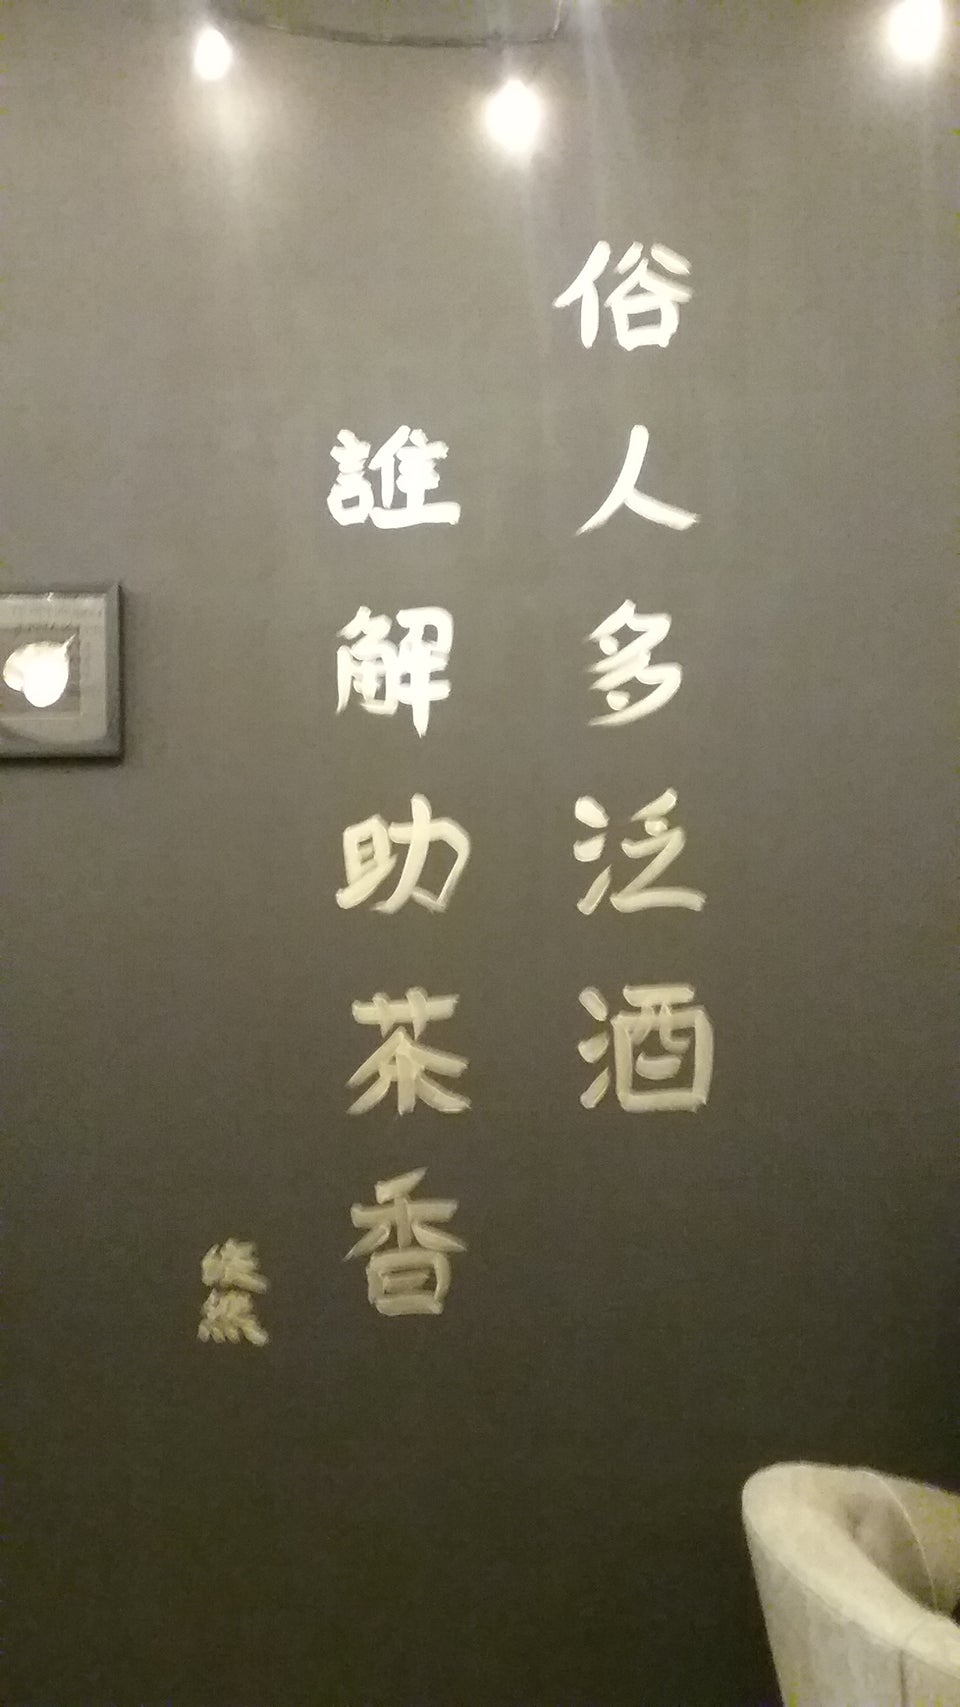 俗人多泛酒
誰解助茶香
皎然